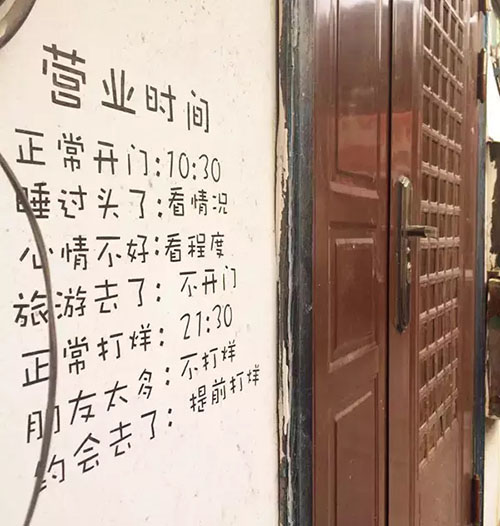 营业时间
正常开门:10:30
睡过头了:看情况
心情不好:看程度
旅游去了:不开门
正常打烊:21:30
朋友太多:不打烊
约会去了:提前打烊